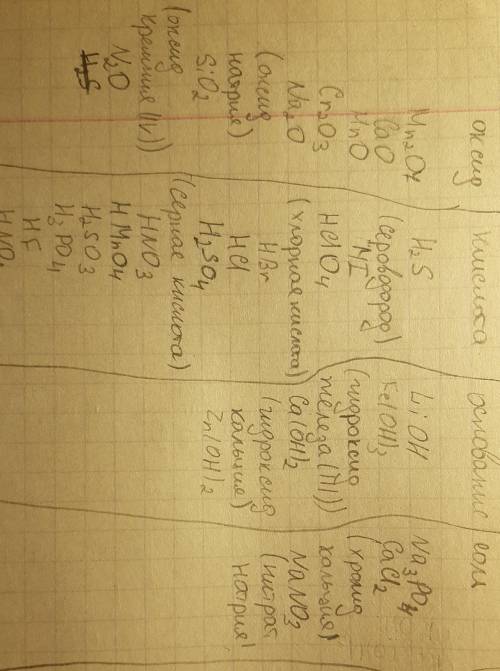 оксид
Mn2O7
CaO
MnO
Cr2O3
Na2O
(оксид
натрия)
SiO2
(оксид
кремния (IV))
N2O
H2S
кислота
H2S
(сероводород)
HI
HClO4
(хлорная кислота)
HBr
HCl
H2SO4
(серная кислота)
HNO3
HMnO4
H2SO3
H3PO4
HF
основание
LiOH
Fe(OH)3
(гидроксид
железа (III))
Ca(OH)2
(гидроксид
кальция)
Zn(OH)2
соли
Na3PO4
CaCl2
кальция)
NaNO3
(нитрат
натрия)